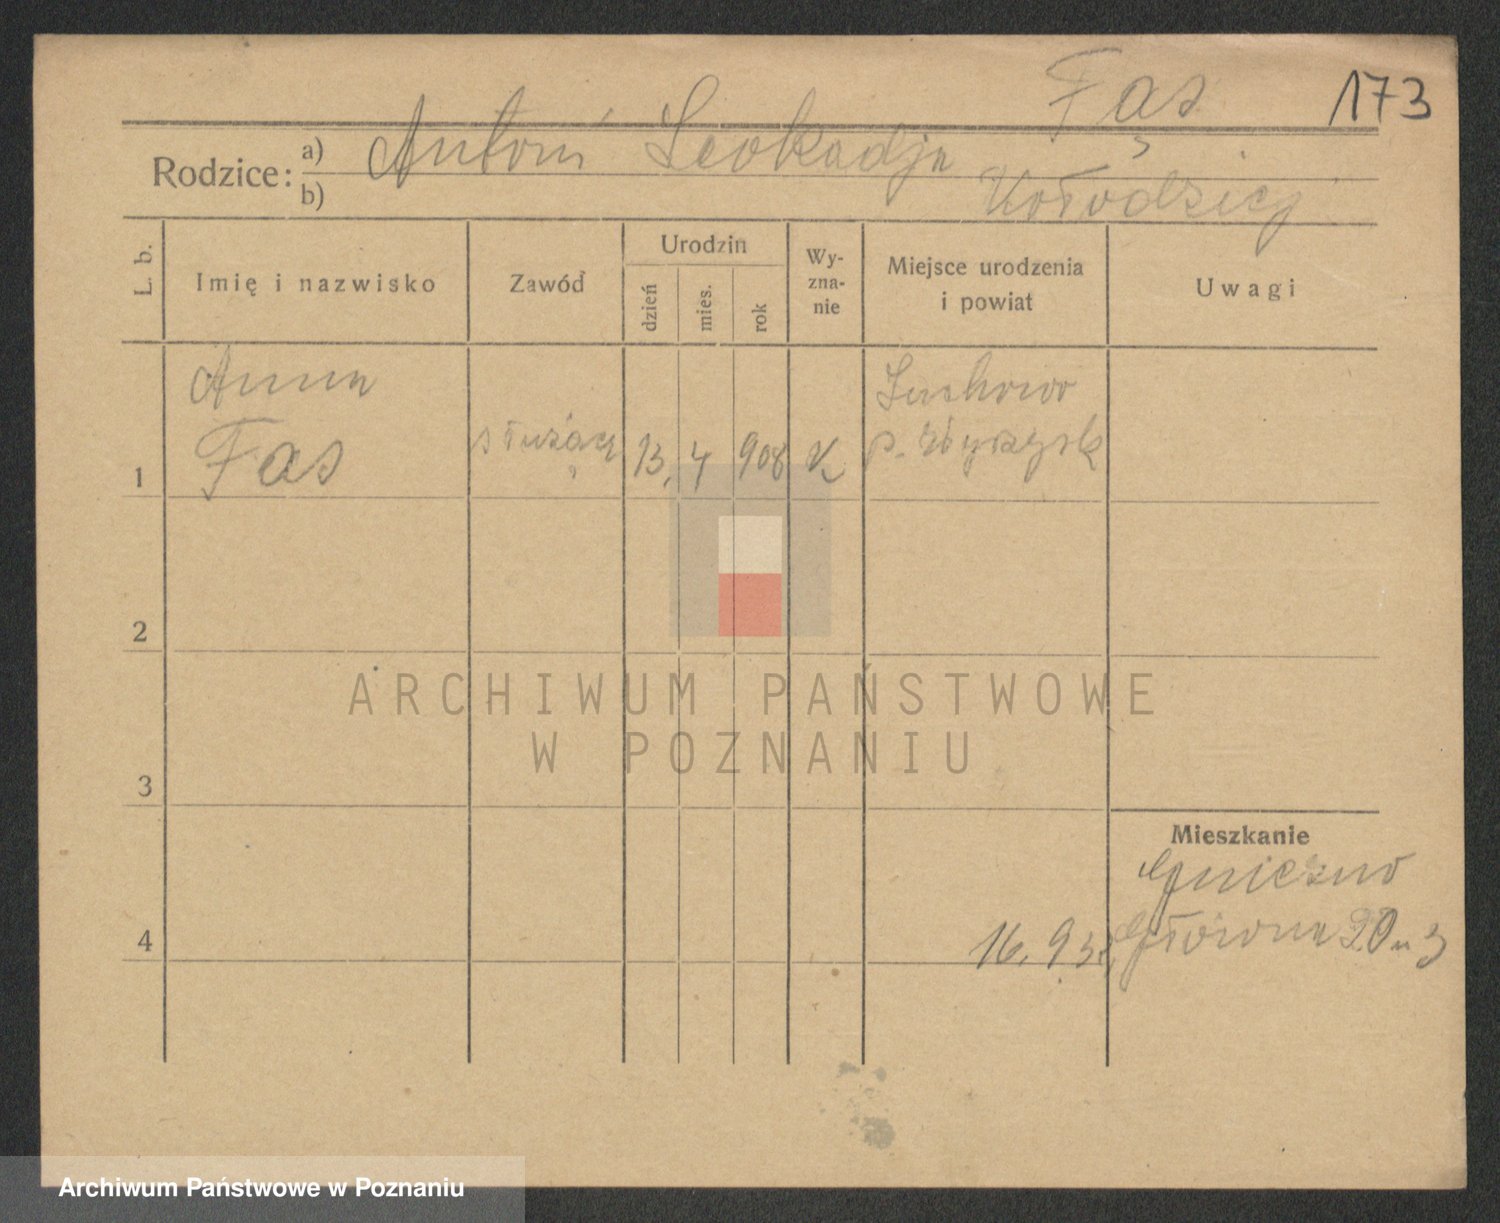 Fąs 173
Antoni Leokadja
Rodzice: a)
b) Kołodziej
L. b. Imię i nazwisko Zawód Urodzin dzień mies. rok Wy-zna-nie Miejsce urodzenia i powiat Uwagi
Anna Suchowo
1 Fas służąca 13. 4 908 K p. Wyrzysk
2
ARCHIWUM PAŃSTWOWE
W POZNANIU
3
Mieszkanie
Gniezno
4 16. 9 32, Główna 20 m 3
Archiwum Państwowe w Poznaniu